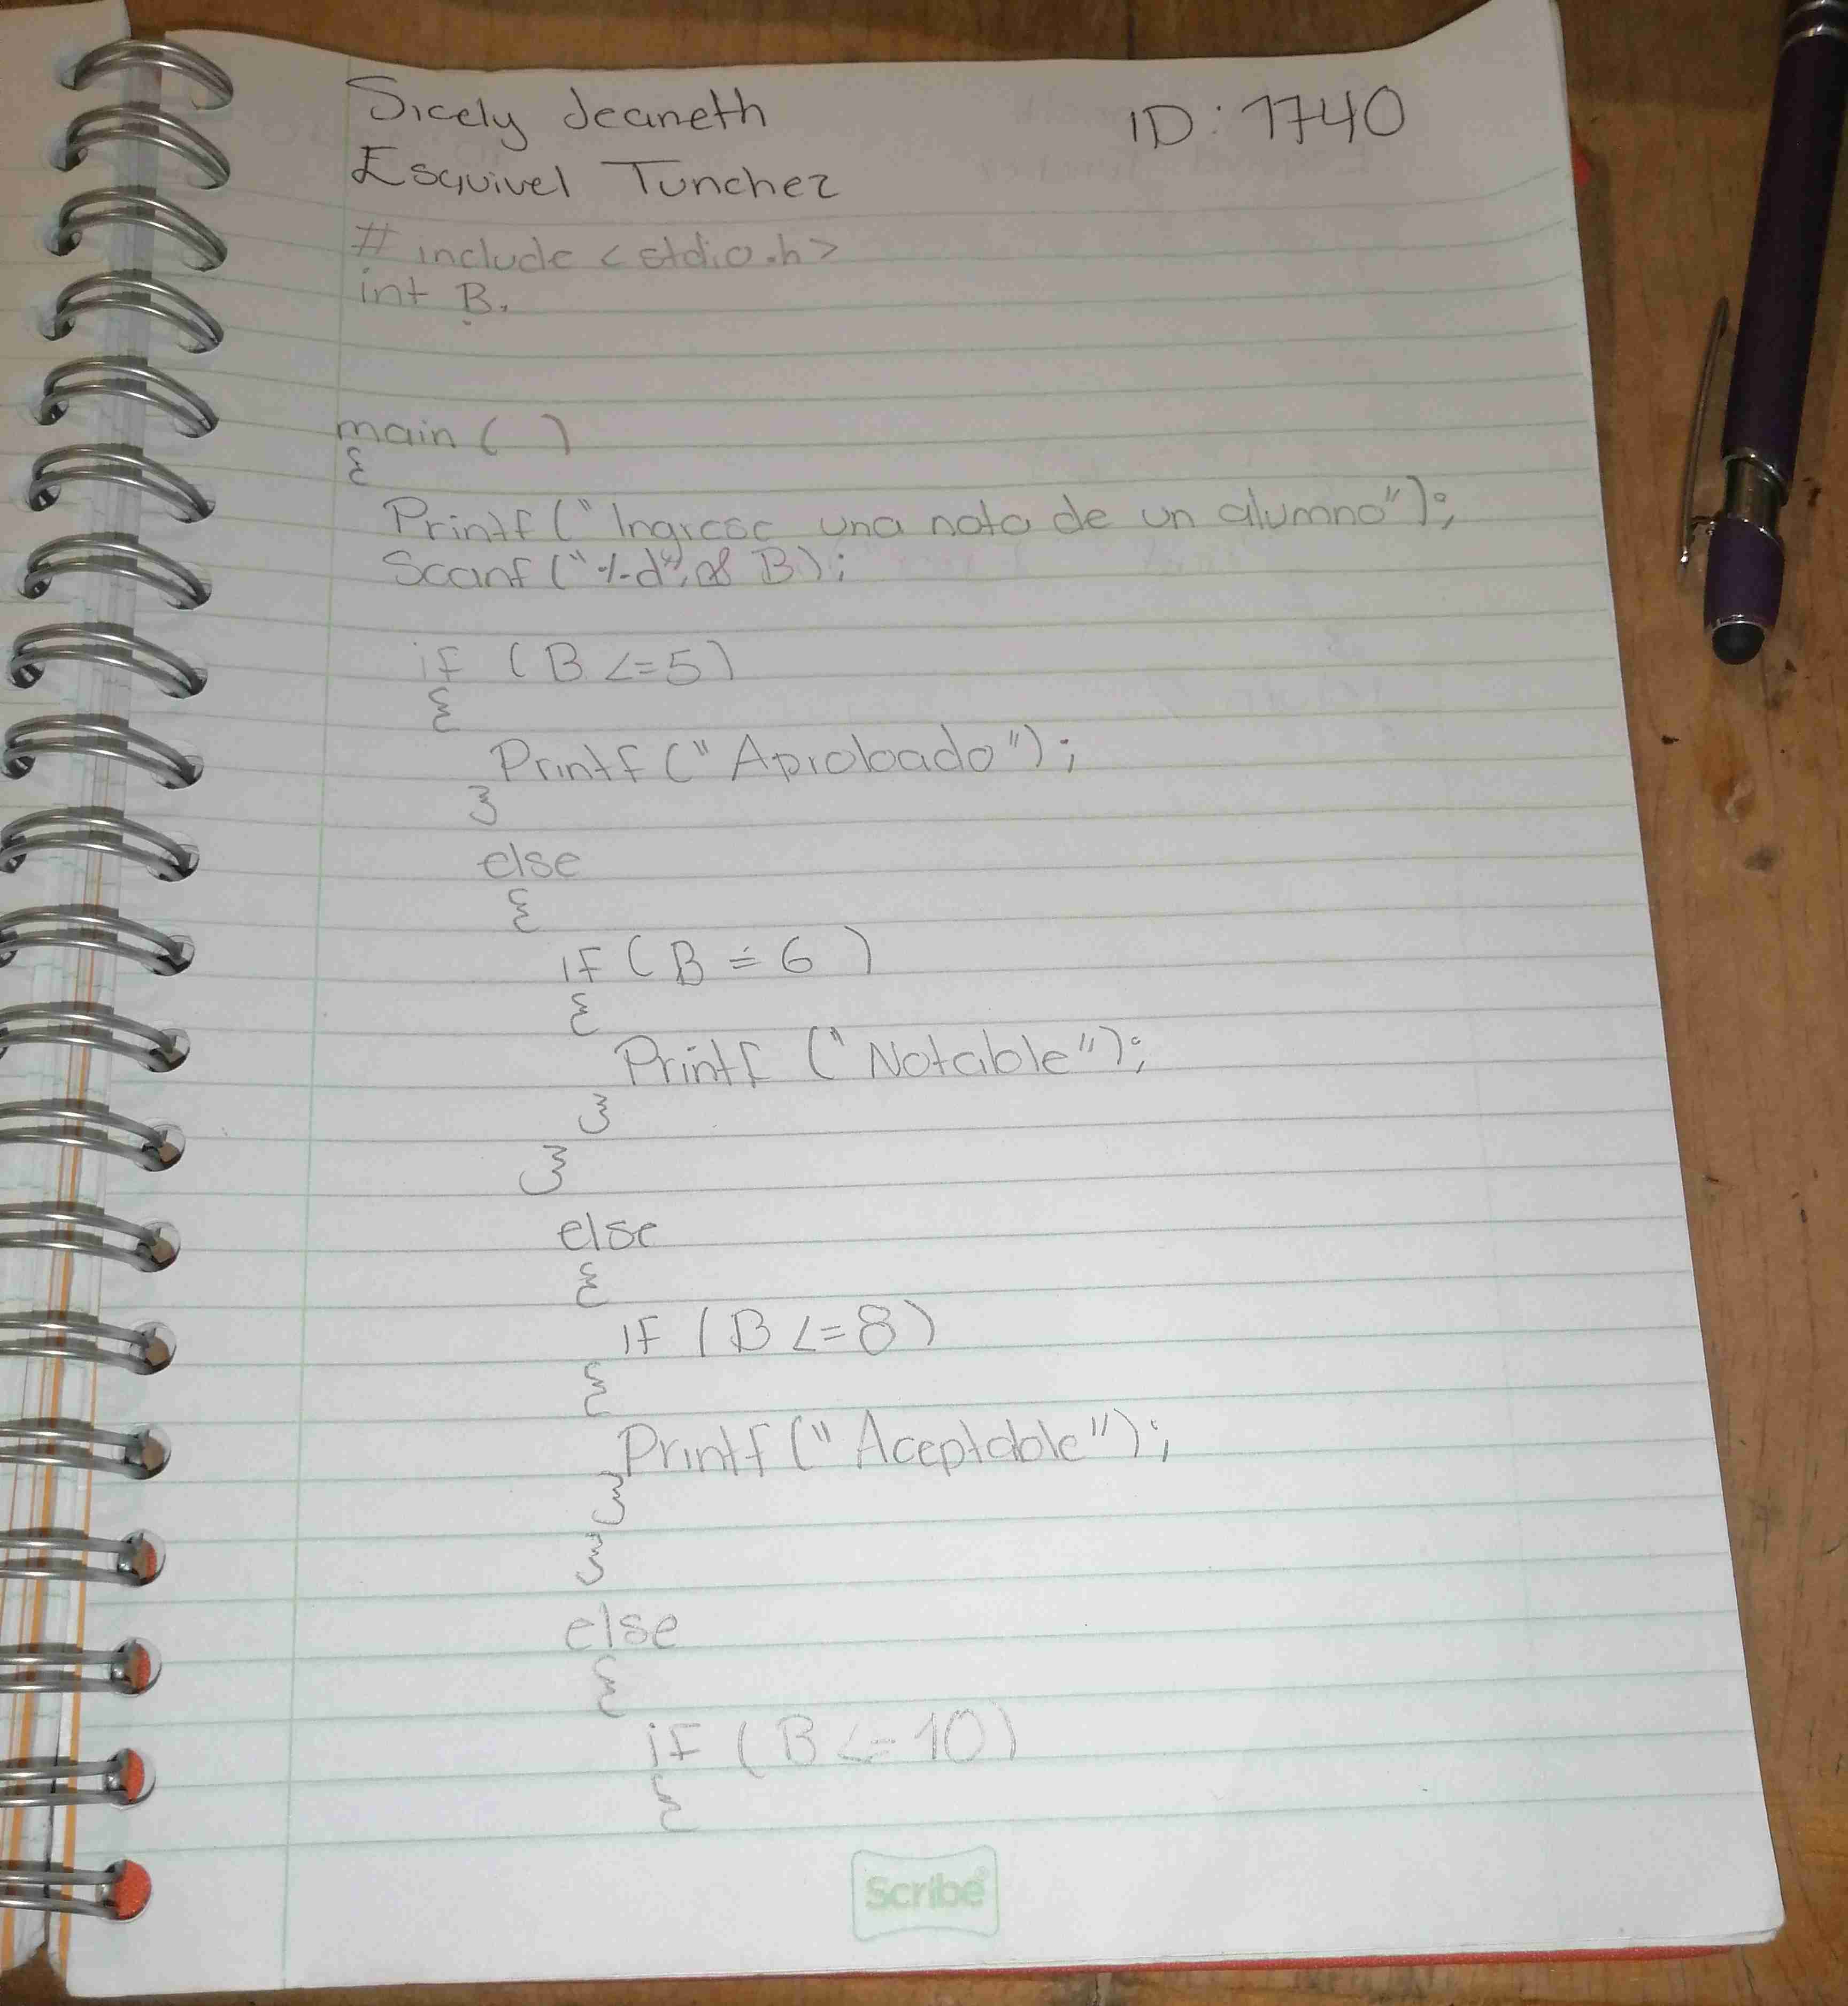 Sicely Jeaneth
ID: 1740
Esquivel Tunchez
# include <stdio.h>
int B.
main ( )
{
Printf ("Ingrese una nota de un alumno");
Scanf ("%d", & B);
if (B <=5)
{
Printf ("Aprobado");
}
else
{
if (B = 6 )
{
Printf ("Notable");
}
}
else
{
if (B <=8)
{
Printf ("Aceptable");
}
}
else
{
if (B <=10)
{
Scribe®